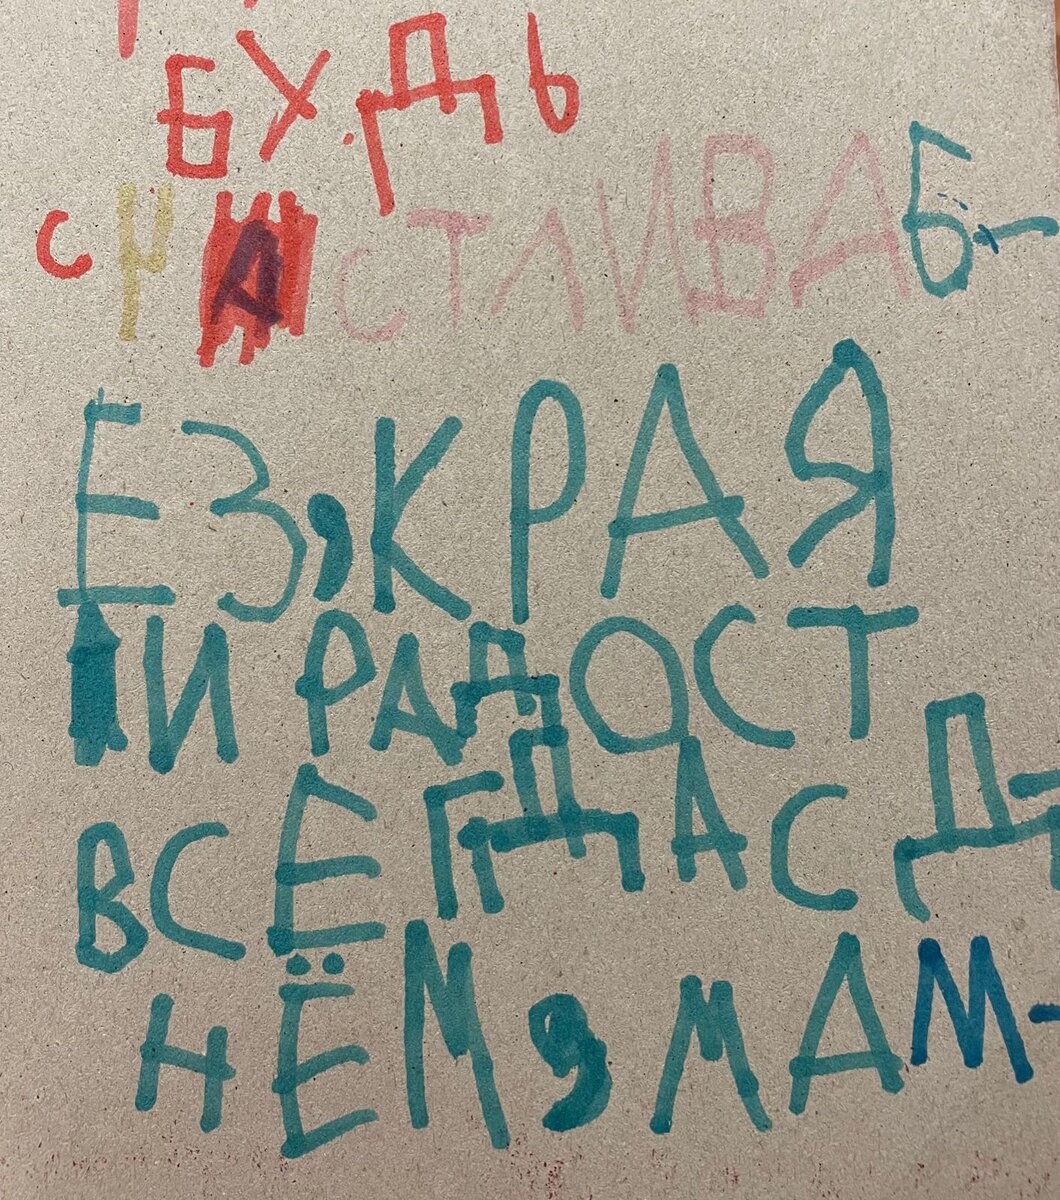 БУДЬ
СЧАСТЛИВА Б-
ЕЗ,КРАЯ
И РАДОСТ
ВСЕГДА С Д-
НЁМ,МАМ-